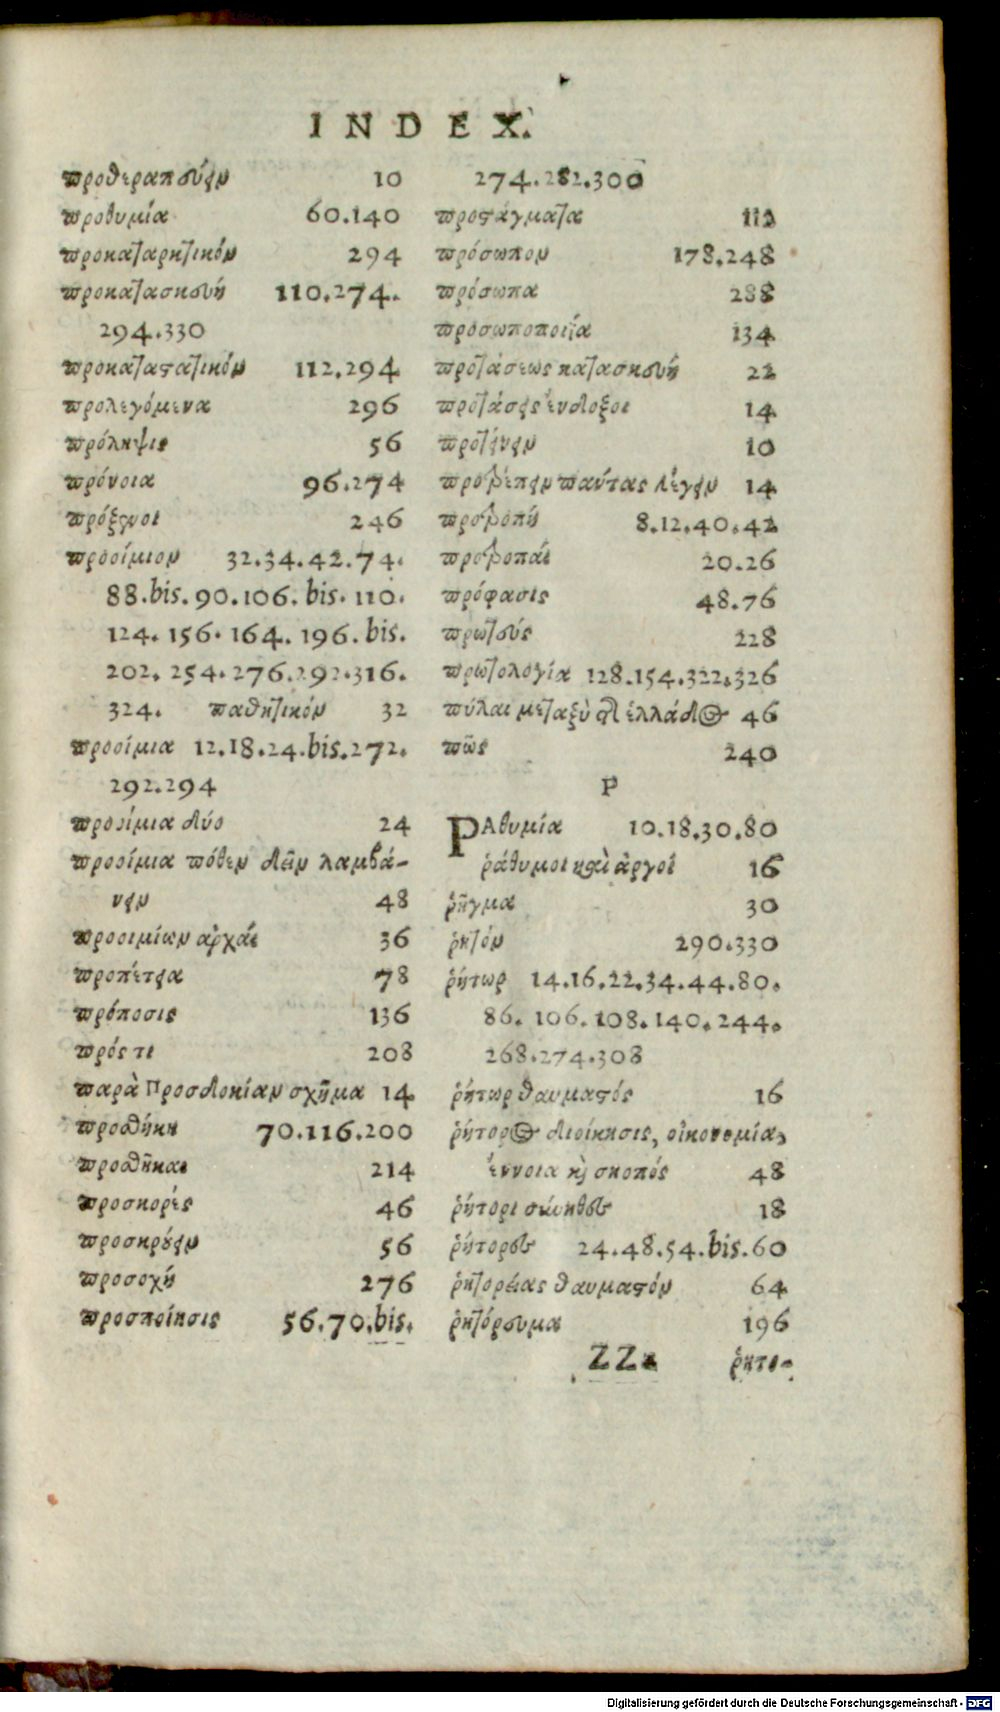 INDEX.
προθεραπεύειν 10
προθυμία 60.140
προκαταρκτικόν 294
προκατασκευή 110.274.
294.330
προκαταστατικόν 112.294
προλεγόμενα 296
πρόληψις 56
πρόνοια 96.274
πρόξενοι 246
προοίμιον 32.34.42.74.
88.bis.90.106.bis.110.
124.156.164.196.bis.
202.254.276.292.316.
324. παθητικόν 32
προοίμια 12.18.24.bis.272.
292.294
προοίμια δύο 24
προοίμια πόθεν δεῖν λαμβά-
νειν 48
προοιμίων ἀρχαὶ 36
προπέτεια 78
πρόποσις 136
πρός τι 208
παρὰ Προσδοκίαν σχῆμα 14
προσθήκη 70.116.200
προσθῆκαι 214
προσκορές 46
προσκρούειν 56
προσοχή 276
προσποίησις 56.70.bis.
274.282.300
προστάγματα 112
πρόσωπον 178.248
πρόσωπα 288
προσωποποιΐα 134
προτάσεως κατασκευή 22
προτάσεις ἔνδοξοι 14
προτείνειν 10
προτρέπειν παύτας λέγειν 14
προτροπή 8.12.40.42
προτροπαί 20.26
πρόφασις 48.76
πρωτεύς 228
πρωτολογία 128.154.322.326
πύλαι μεταξὺ τῆς ἑλλάδος 46
πῶς 240
Ρ
ΡΑθυμία 10.18.30.80
ῥάθυμοι καὶ ἀργοί 16
ῥῆγμα 30
ῥητόν 290.330
ῥήτωρ 14.16.22.34.44.80.
86.106.108.140.244.
268.274.308
ῥήτωρ θαυμαστός 16
ῥήτορος διοίκησις, οἰκονομία,
ἔννοια κὴ σκοπός 48
ῥήτορι σύνηθες 18
ῥήτορες 24.48.54.bis.60
ῥητορείας θαυμαστόν 64
ῥητόρευμα 196
ZZ ῥητο-
Digitalisierung gefördert durch die Deutsche Forschungsgemeinschaft - DFG